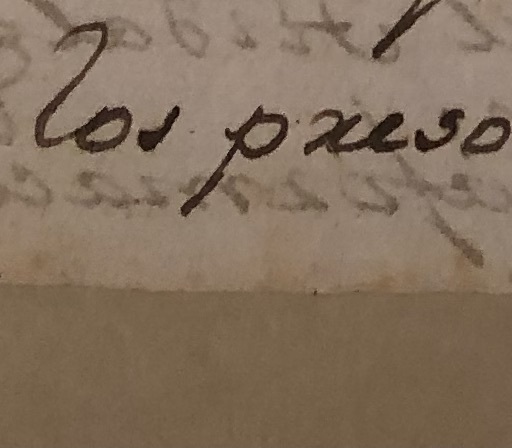 los preso